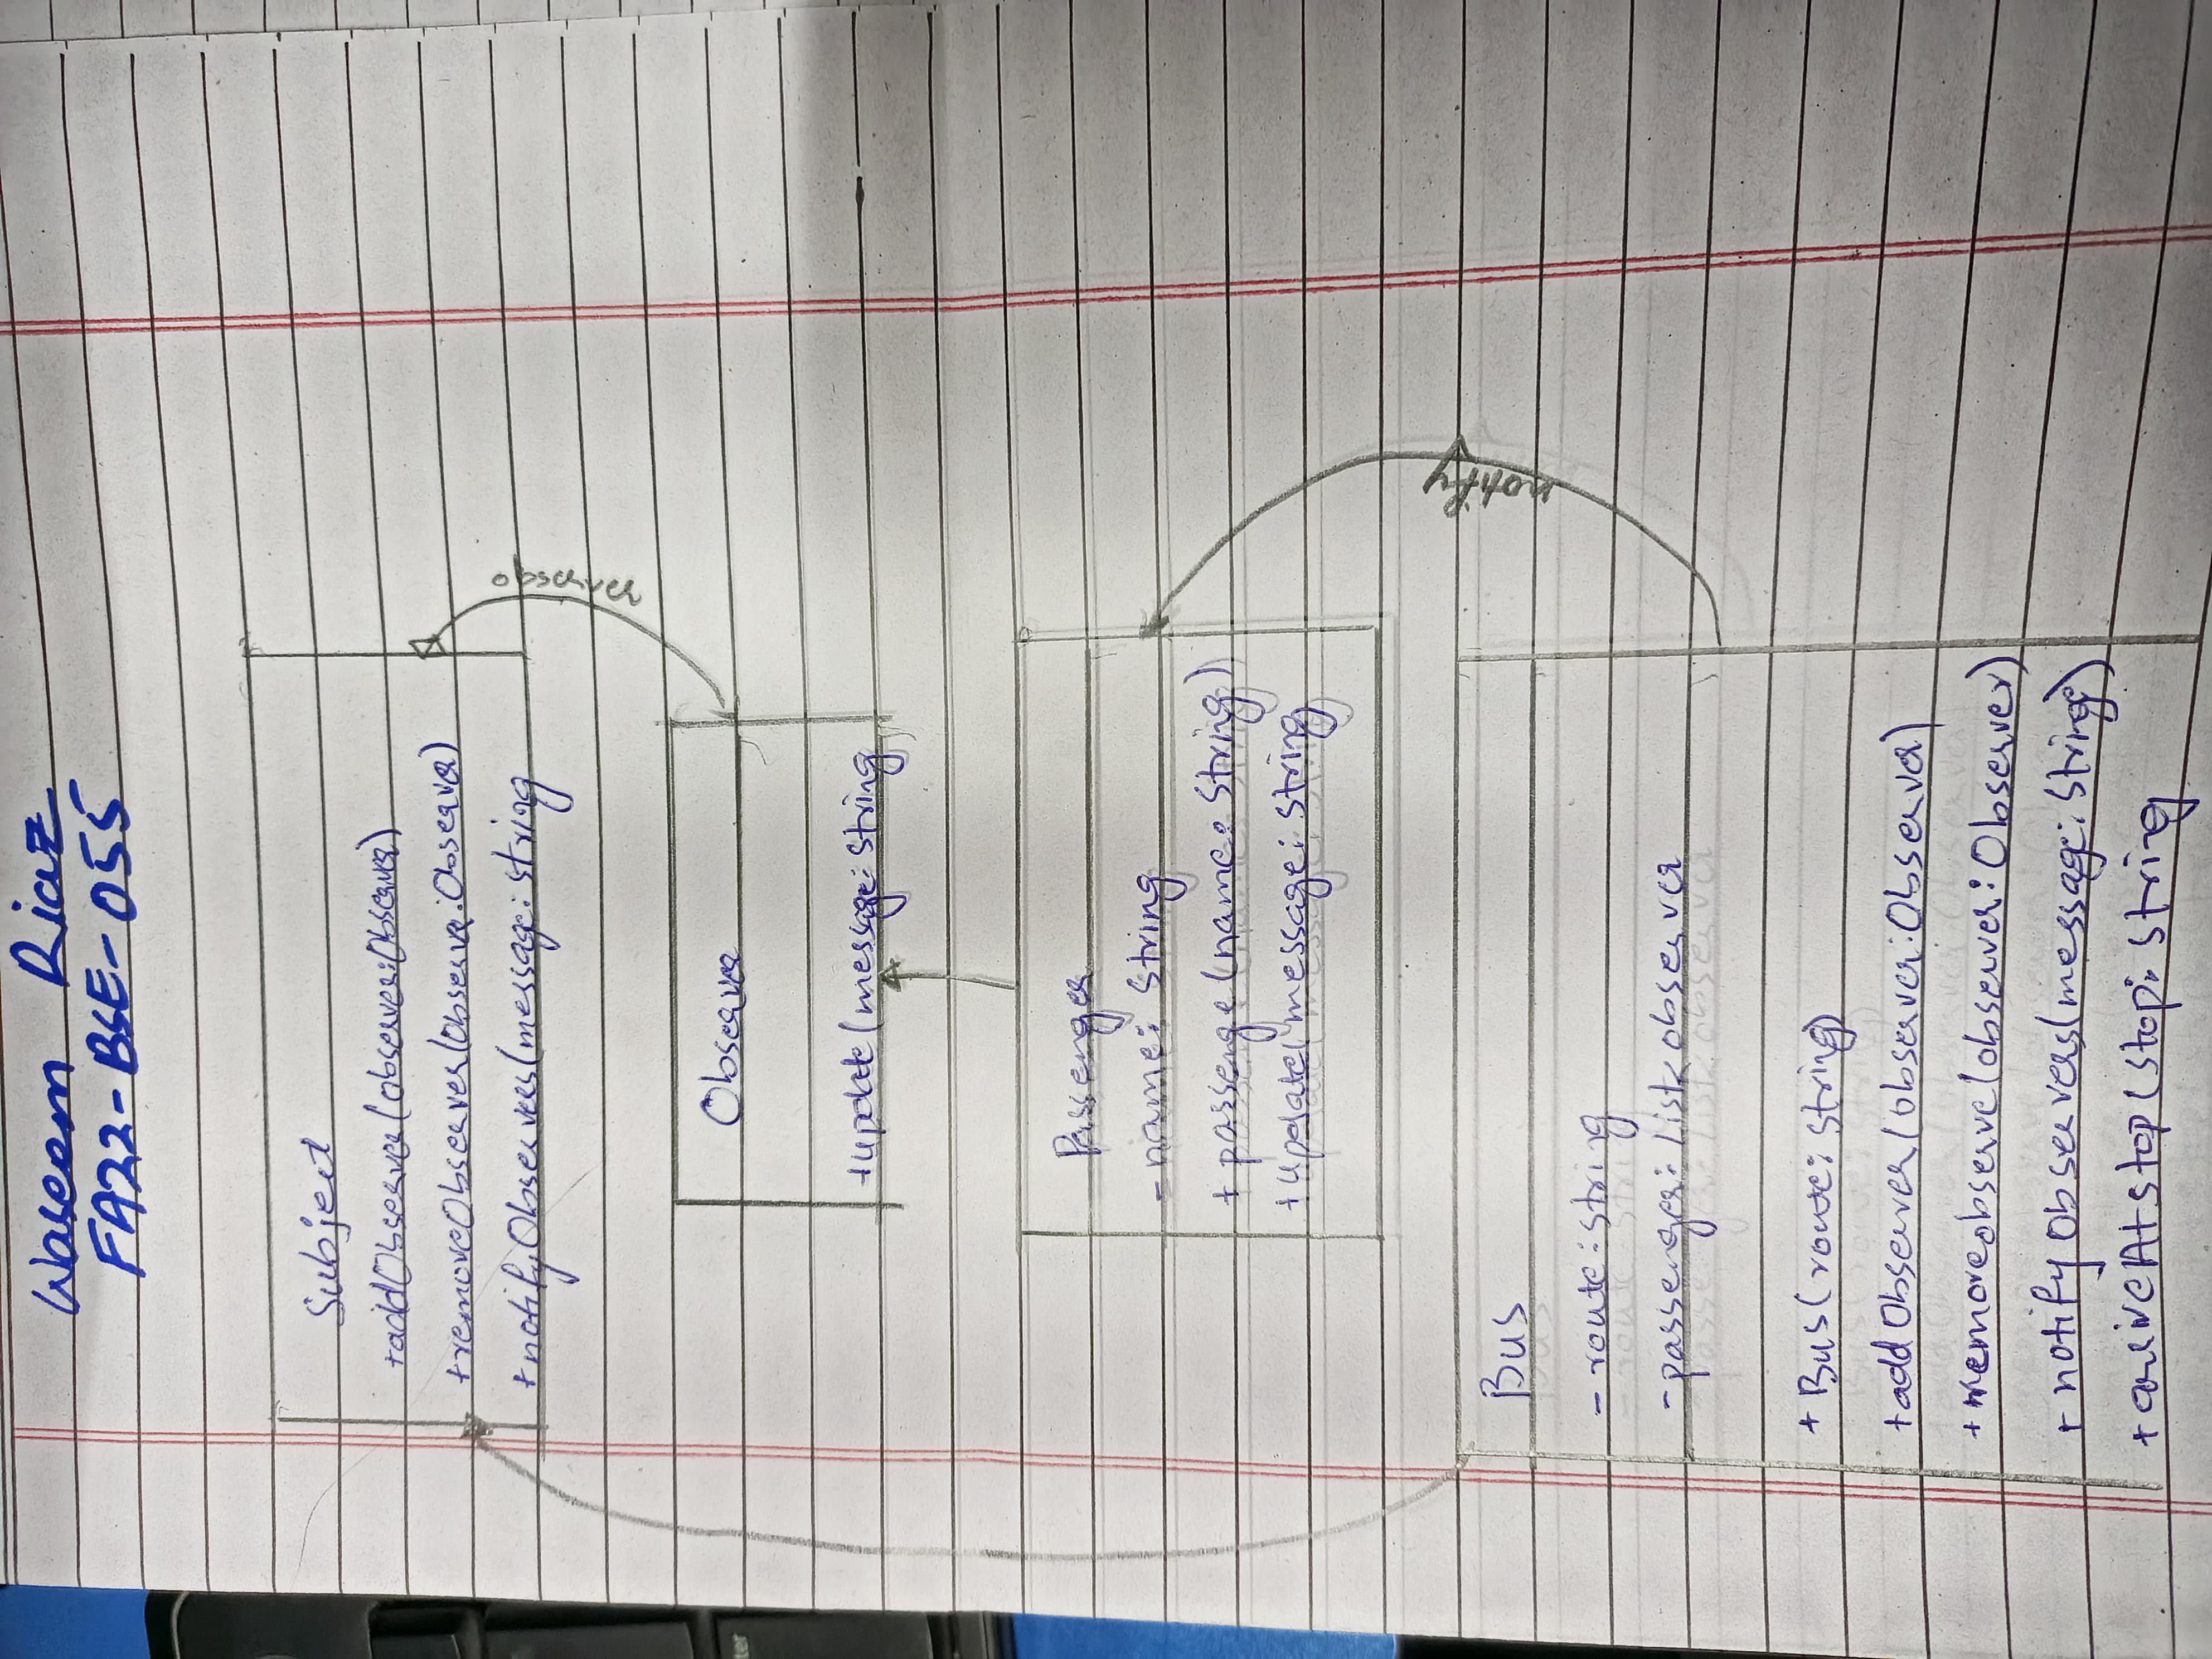 Waseem Riaz
FA22-BSE-055
Subject
+addObserver(observer:Observer)
+removeObserver(Observer:Observer)
+notifyObserves(message:string
observer
Observer
+update(message:string
Passenger
-name: string
+ passenge(name:string)
+update(message:string)
notify
Bus
- route:string
- passenger:list<observer
+ Bus(route:string)
+addObserver(observer:Observer)
+remoreobserve(observer:Observer)
+ notifyObservers(message:string)
+ arriveAtstop(stop:string